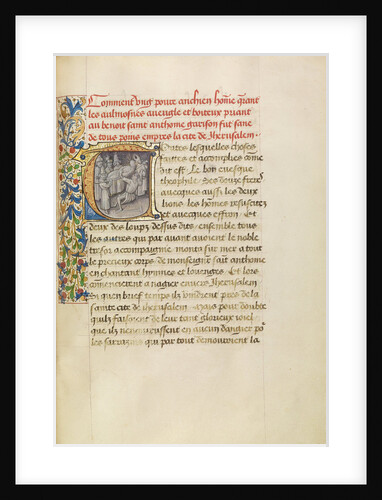 Comment ung povre anchien homme querant
les aulmosnes aveugle et boiteux priant
au benoit saint anthoine garison fut sane
de tous poins empres la cite de Jherusalem.
Toutes lesquelles choses
faittes et accomplies come
dit est. Le bon evesque
theophile. Ses deux freres
avecques aussi les deux
lions. les hommes resuscites
et avecques effron. Et
deux des loups dessus dits. ensemble tous
les autres qui par avant avoient le noble
tresor accompaigne. monta sur mer a tout
le precieux corps de monseigneur saint anthoine
en chantant hymnes et louenges. Et lors
commencierent a nagier envers Jherusalem
Si quen brief temps ilz vindrent pres de la
sainte cite de jherusalem. Mais pour doubte
quilz faisoient de leur tant glorieux joiel.
que ilz nencheussent en aucun dangier por
les sarrazins qui par tout demouroient la